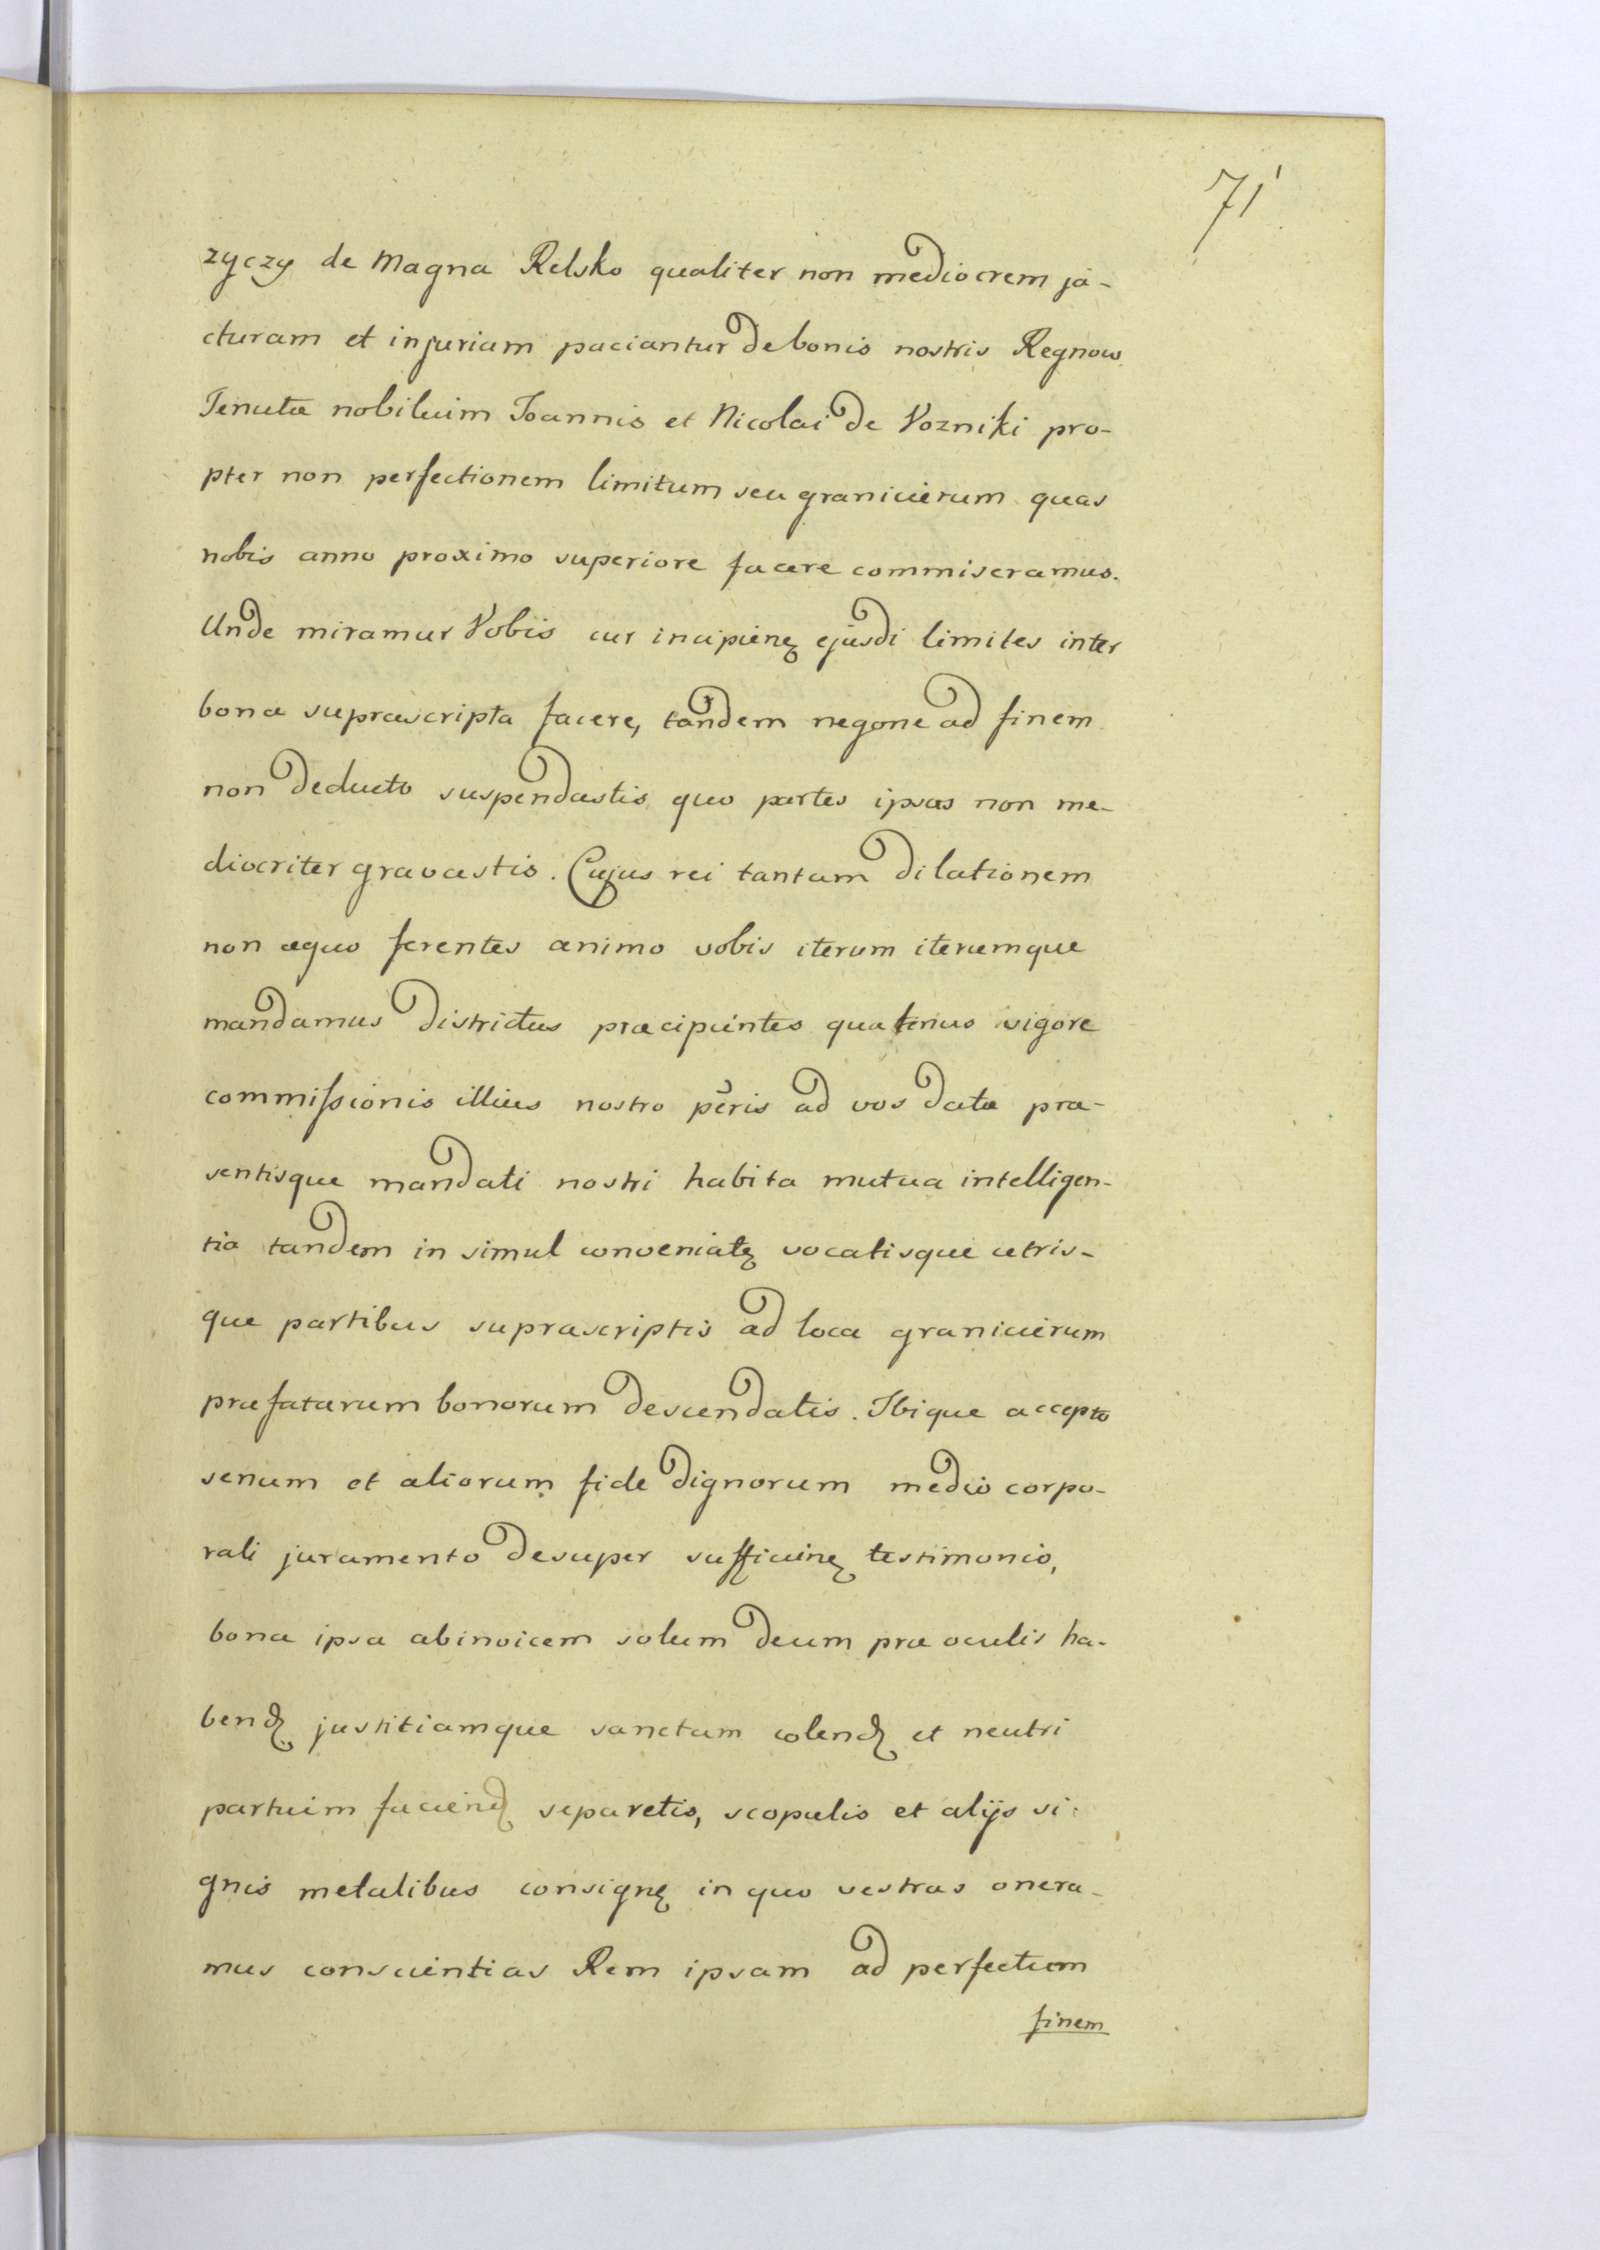 71
zyczy de Magna Relsko qualiter non mediocrem ja-
cturam et injuriam paciantur de bonis nostris Regnow
Tenutæ nobilium Joannis et Nicolai de Vozniki pro-
pter non perfectionem limitum seu granicierum quas
nobis anno proximo superiore facere commiseramus.
Unde miramur Vobis cur incipienẹ ejusdi limites inter
bona supræscripta facere, tandem negone ad finem
non deducto suspendastis quo partes ipsas non me-
diocriter gravastis. Cujus rei tantam dilationem
non æquo ferentes animo vobis iterum iterumque
mandamus districtus præcipientes quatenus vigore
commissionis illius nostro pēris ad vos datæ præ-
sentisque mandati nostri habita mutua intelligen-
tia tandem in simul conveniatẹ vocatisque utris-
que partibus suprascriptis ad loca granicierum
præfatarum bonorum descendatis. Ibique accepto
senum et aliorum fide dignorum medio corpo-
rali juramento desuper sufficienẹ testimonio,
bona ipsa abinvicem solum deum præ oculis ha-
bendẹ justitiamque sanctam colendẹ et neutri
partium faciendẹ separetis, scopulis et alijs si:
gnis metalibus consignẹ in quo vestras onera-
mus conscientias Rem ipsam ad perfectum
finem